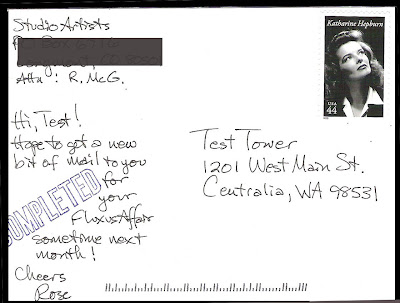 Studio Artists
Attn: R. McG.
Hi, Test!
Hope to get a new
bit of mail to you
for
your
FluxusAffair
sometime next
month!
Cheers
Rose
COMPLETED
Katharine Hepburn
USA
44
Test Tower
1201 West Main St.
Centralia, WA 98531